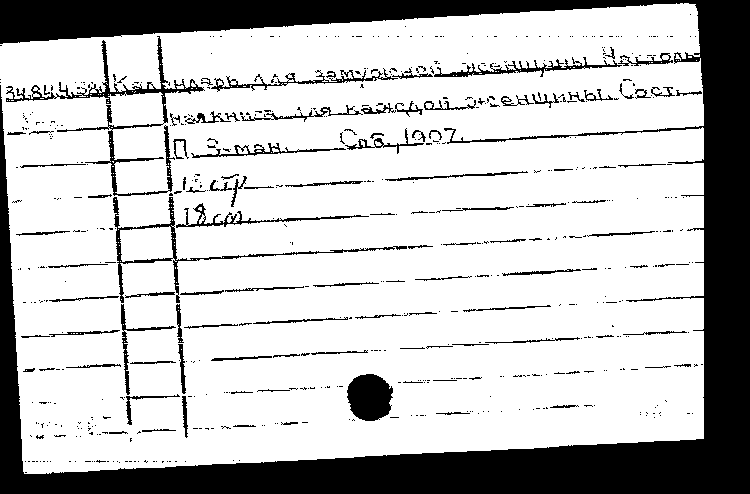 34.844.380 Календарь для замужной женщины Настоль-
ная книга для каждой женщины. Сост.
П. З-ман. Спб., 1907.
стр
18 см.